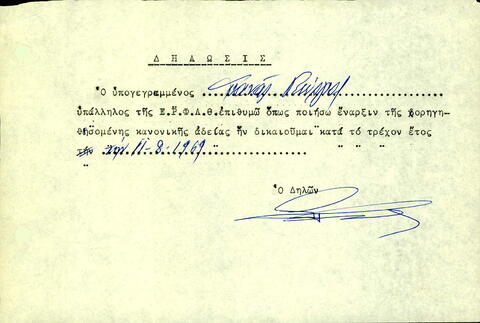 Δ Η Λ Ω Σ Ι Σ
Ὁ ὑπογεγραμμένος
ὑπάλληλος τῆς Ε.Ρ.Φ.Λ.θ.ἐπιθυμῶ ὅπως ποιήσω ἔναρξιν τῆς χορηγη-
θησομένης κανονικῆς ἀδείας ἥν δικαιοῦμαι κατά τό τρέχον ἔτος
τήν 11-8-1969
Ὁ Δηλῶν